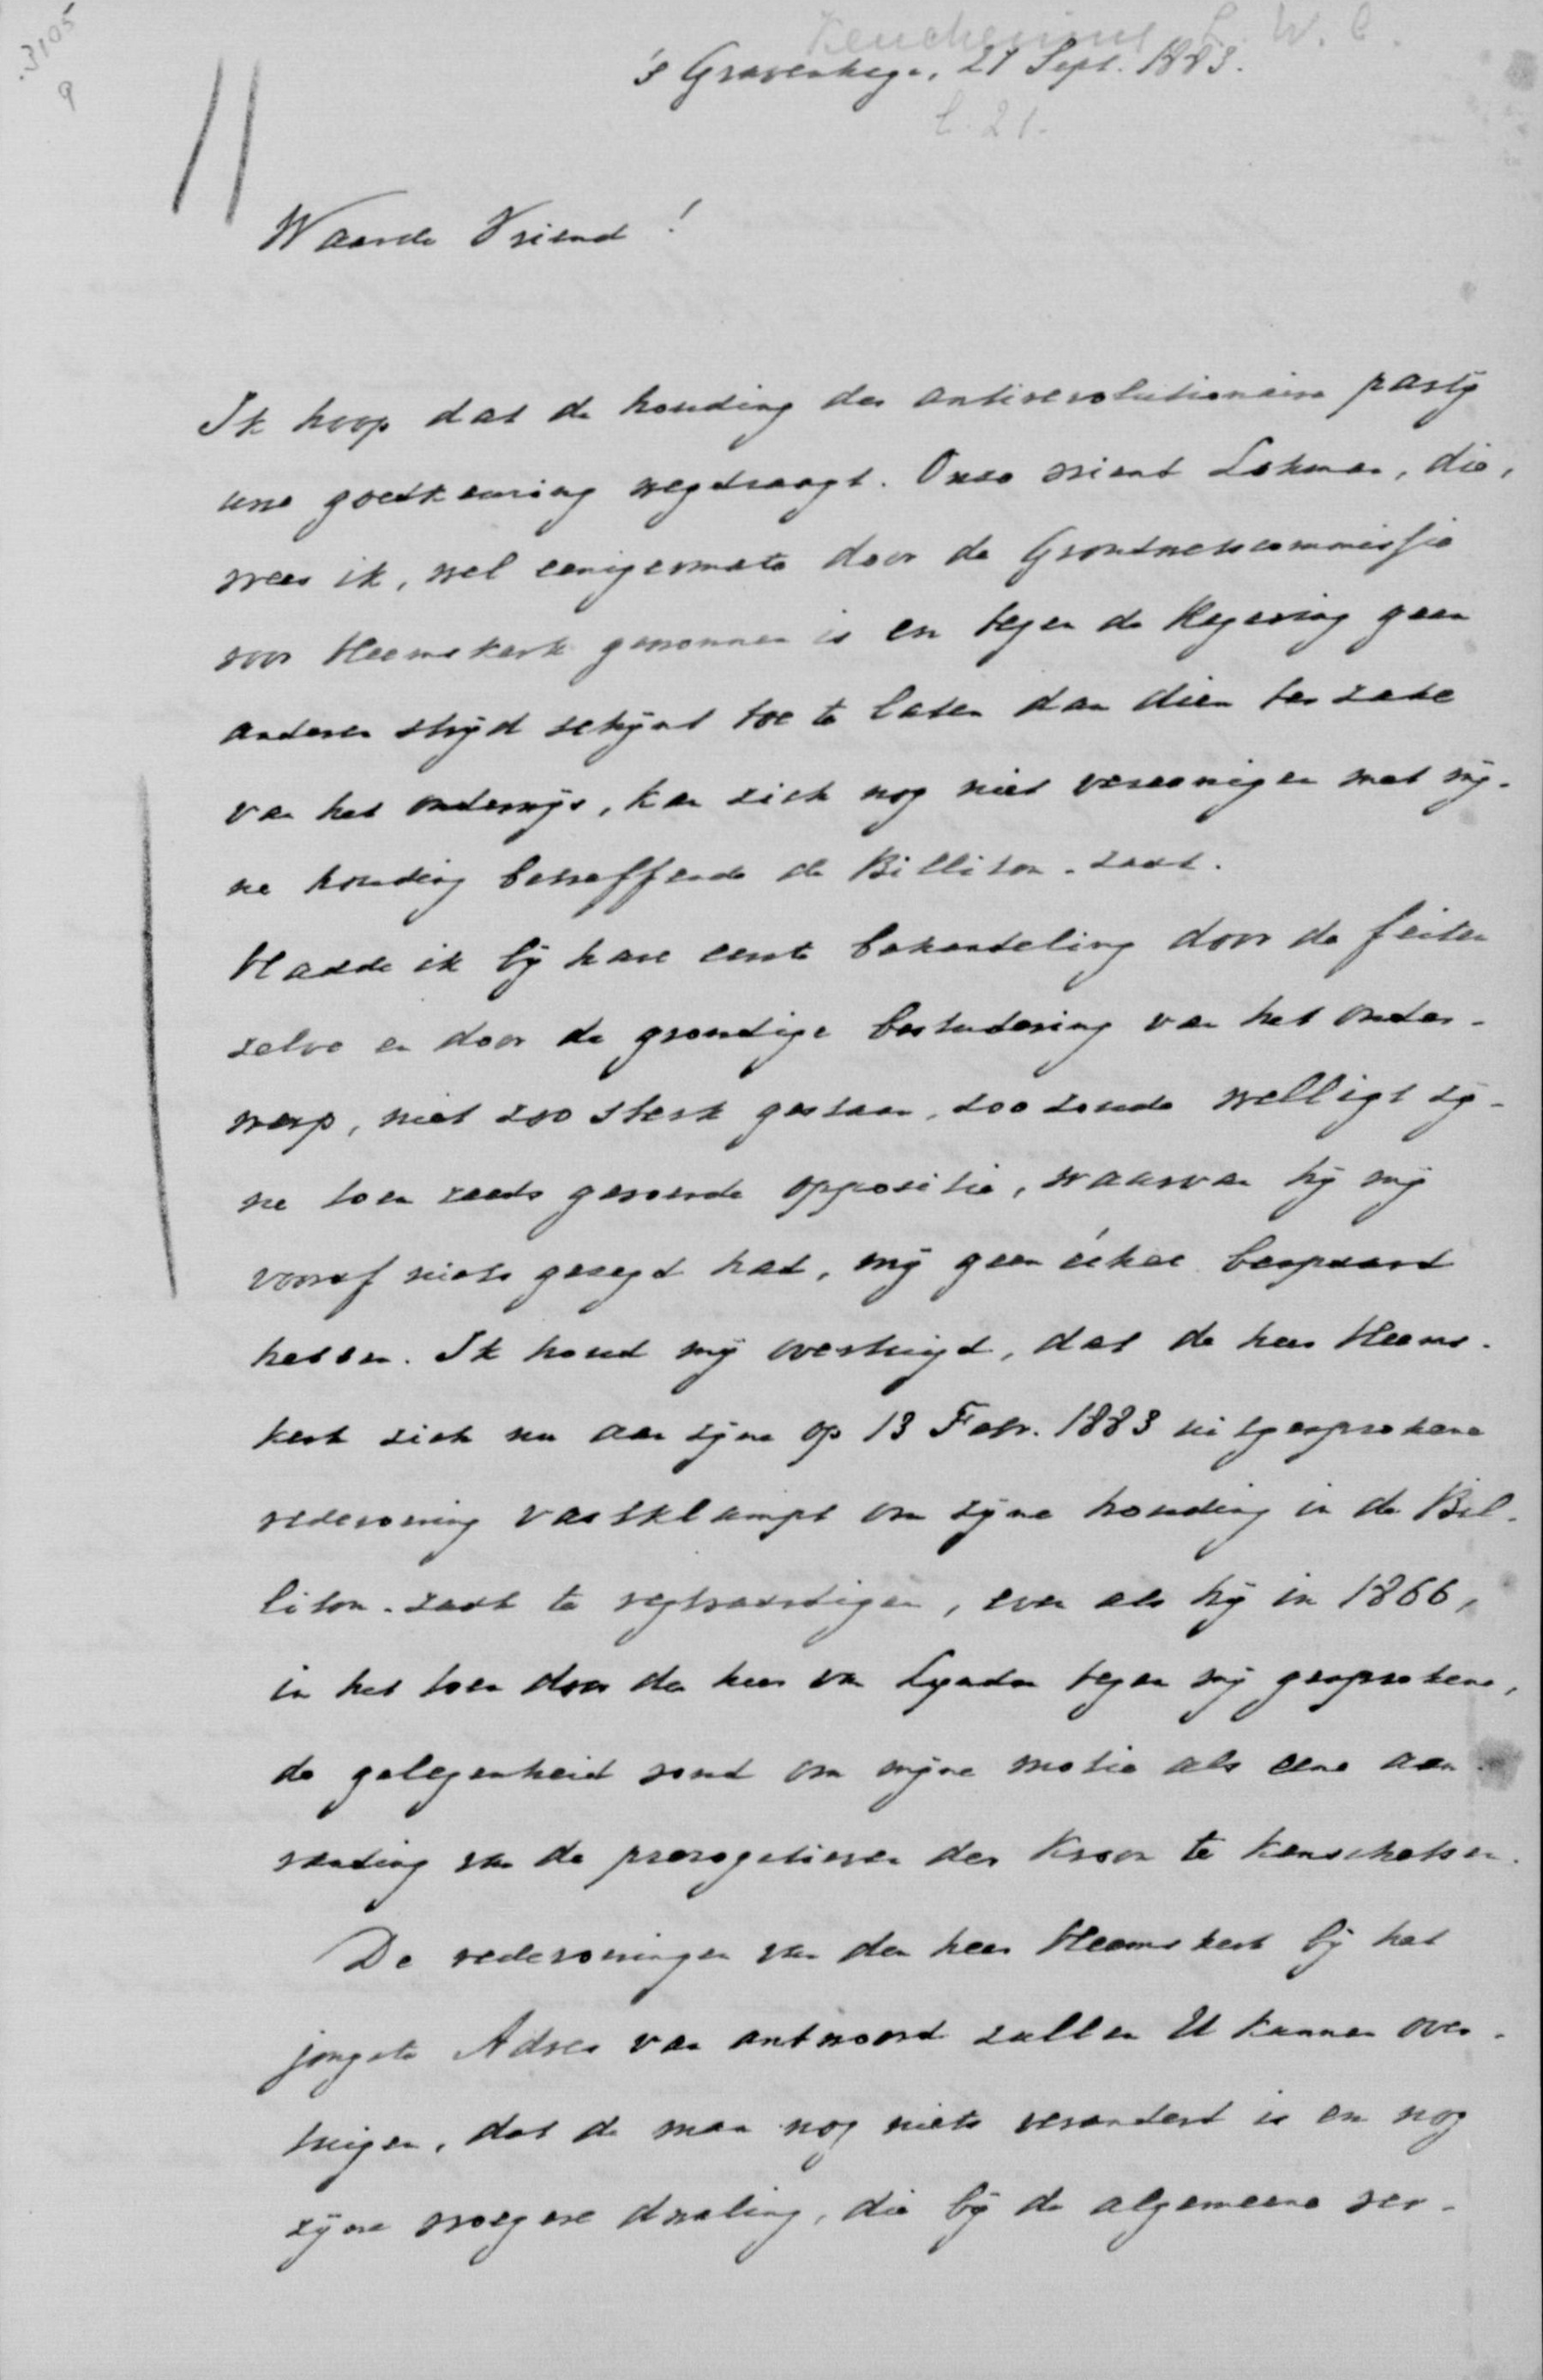 3105
9
Keuchenius L. W. C.
's Gravenhage, 21 Sept. 1883.
C. 21.
Waarde Vriend!
Ik hoop dat de houding der antirevolutionaire party
uwe goedkeuring wegdraagt. Onze vriend Lohman, die,
vrees ik, wel eenigermate door de Grondwetscommissie
voor Heemskerk gewonnen is en tegen de Regering geen
anderen stryd schynt toe te laten dan dien ter zake
van het onderwys, kan zich nog niet vereenigen met my-
ne houding betreffende de Billiton-zaak.
Hadde ik by hare eerste behandeling door de feiten
zelve en door de grondige bestudering van het onder-
werp, niet zoo sterk gestaan, zoo zoude welligt zy-
ne toen reeds gevoerde oppositie, waarvan hy my
vooraf niets gezegd had, my geen échec bespaard
hebben. Ik houd my overtuigd, dat de heer Heems-
kerk zich nu aan zyne op 13 Febr. 1883 uitgesprokene
redevoering vastklampt om zyne houding in de Bil-
liton-zaak te regtvaardigen, even als hy in 1866,
in het toen door de heer van Lynden tegen my gesprokene,
de gelegenheid vond om myne motie als eene aan-
randing van de prerogatieven der Kroon te kenschetsen.
De redevoeringen van den heer Heemskerk by het
jongste Adres van antwoord zullen U kunnen over-
tuigen, dat de man nog niets veranderd is en nog
zyne vroegere dwaling, die by de algemeene ver-